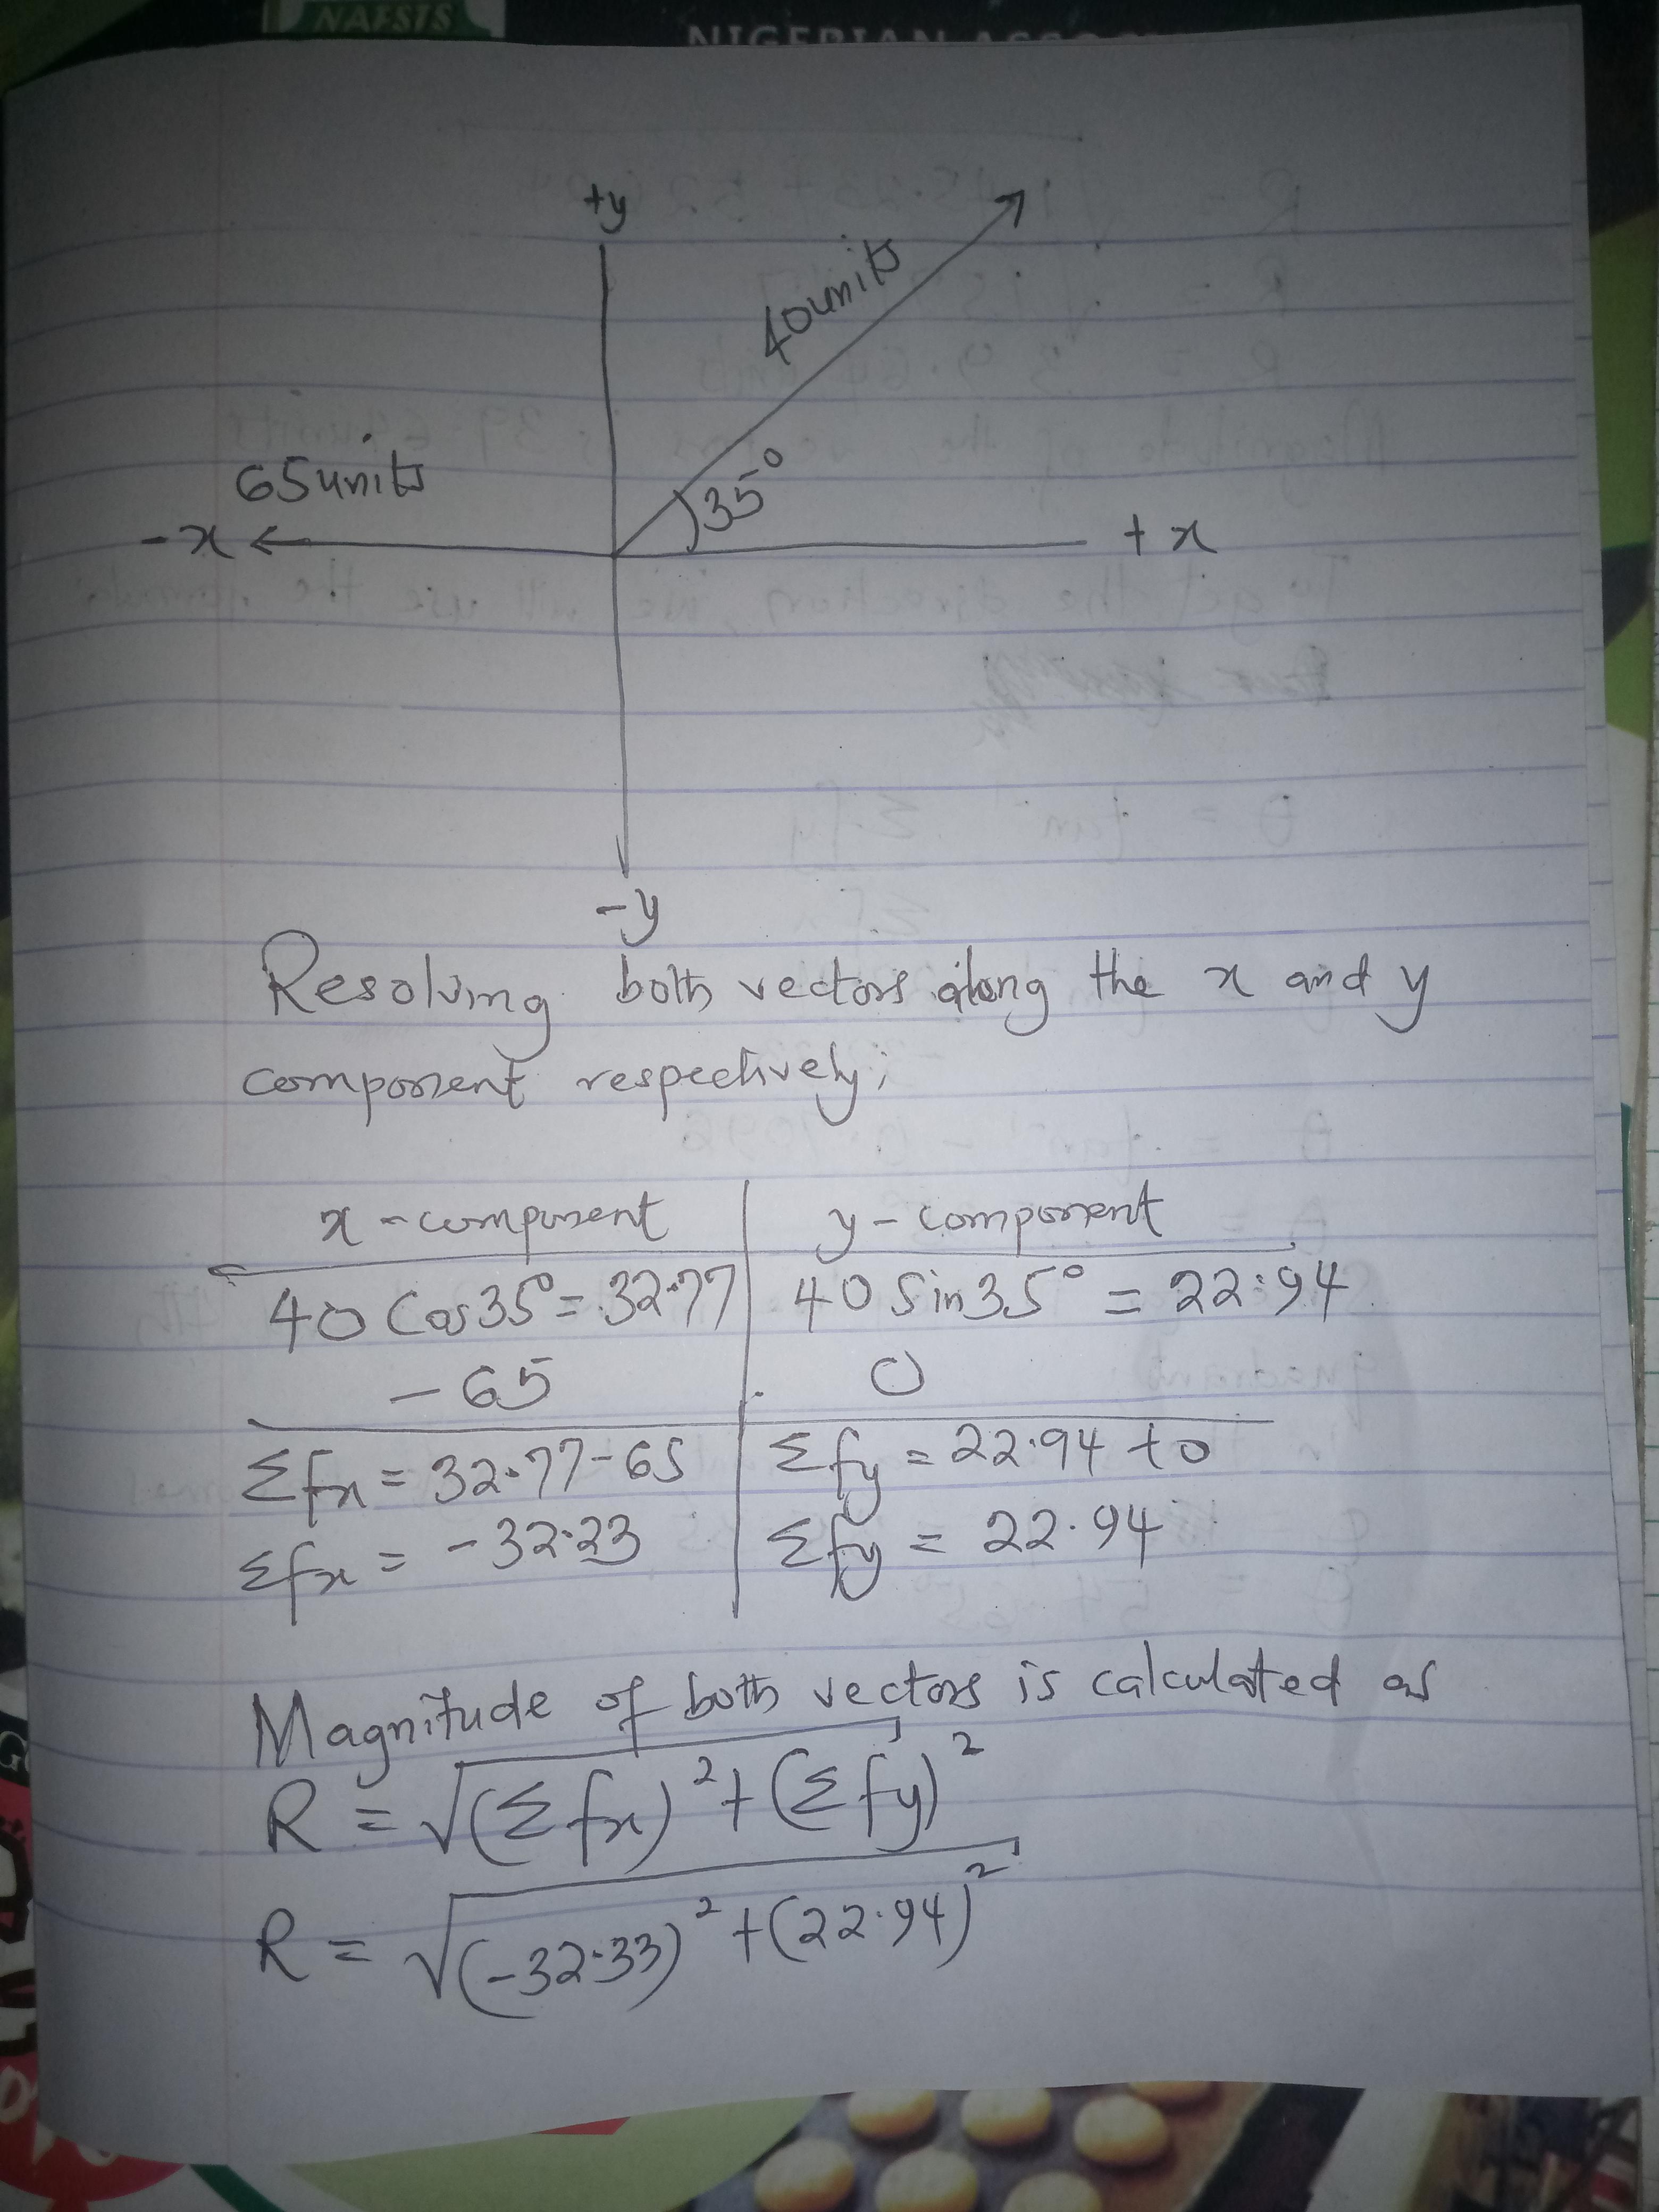 NAFSTS
+y
40units
65units
35°
-x
+x
-y
Resolving both vectors along the x and y
component respectively;
x-component
y-component
40 Cos35°=32.77
40 Sin35° = 22.94
-65
0
Σfx = 32.77-65
Σfy = 22.94 +0
Σfx = -32.23
Σfy = 22.94
Magnitude of both vectors is calculated as
R = √(Σfx)²+(Σfy)²
R = √(-32.33)²+(22.94)²